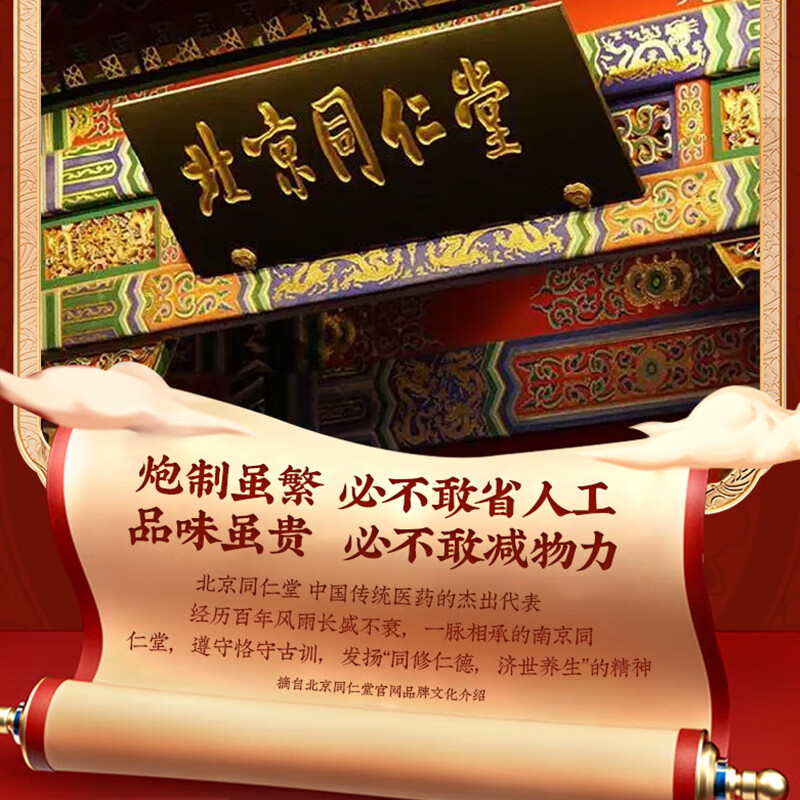 北京同仁堂
炮制虽繁 必不敢省人工
品味虽贵 必不敢减物力
北京同仁堂 中国传统医药的杰出代表
经历百年风雨长盛不衰，一脉相承的南京同
仁堂，遵守恪守古训，发扬“同修仁德，济世养生”的精神
摘自北京同仁堂官网品牌文化介绍